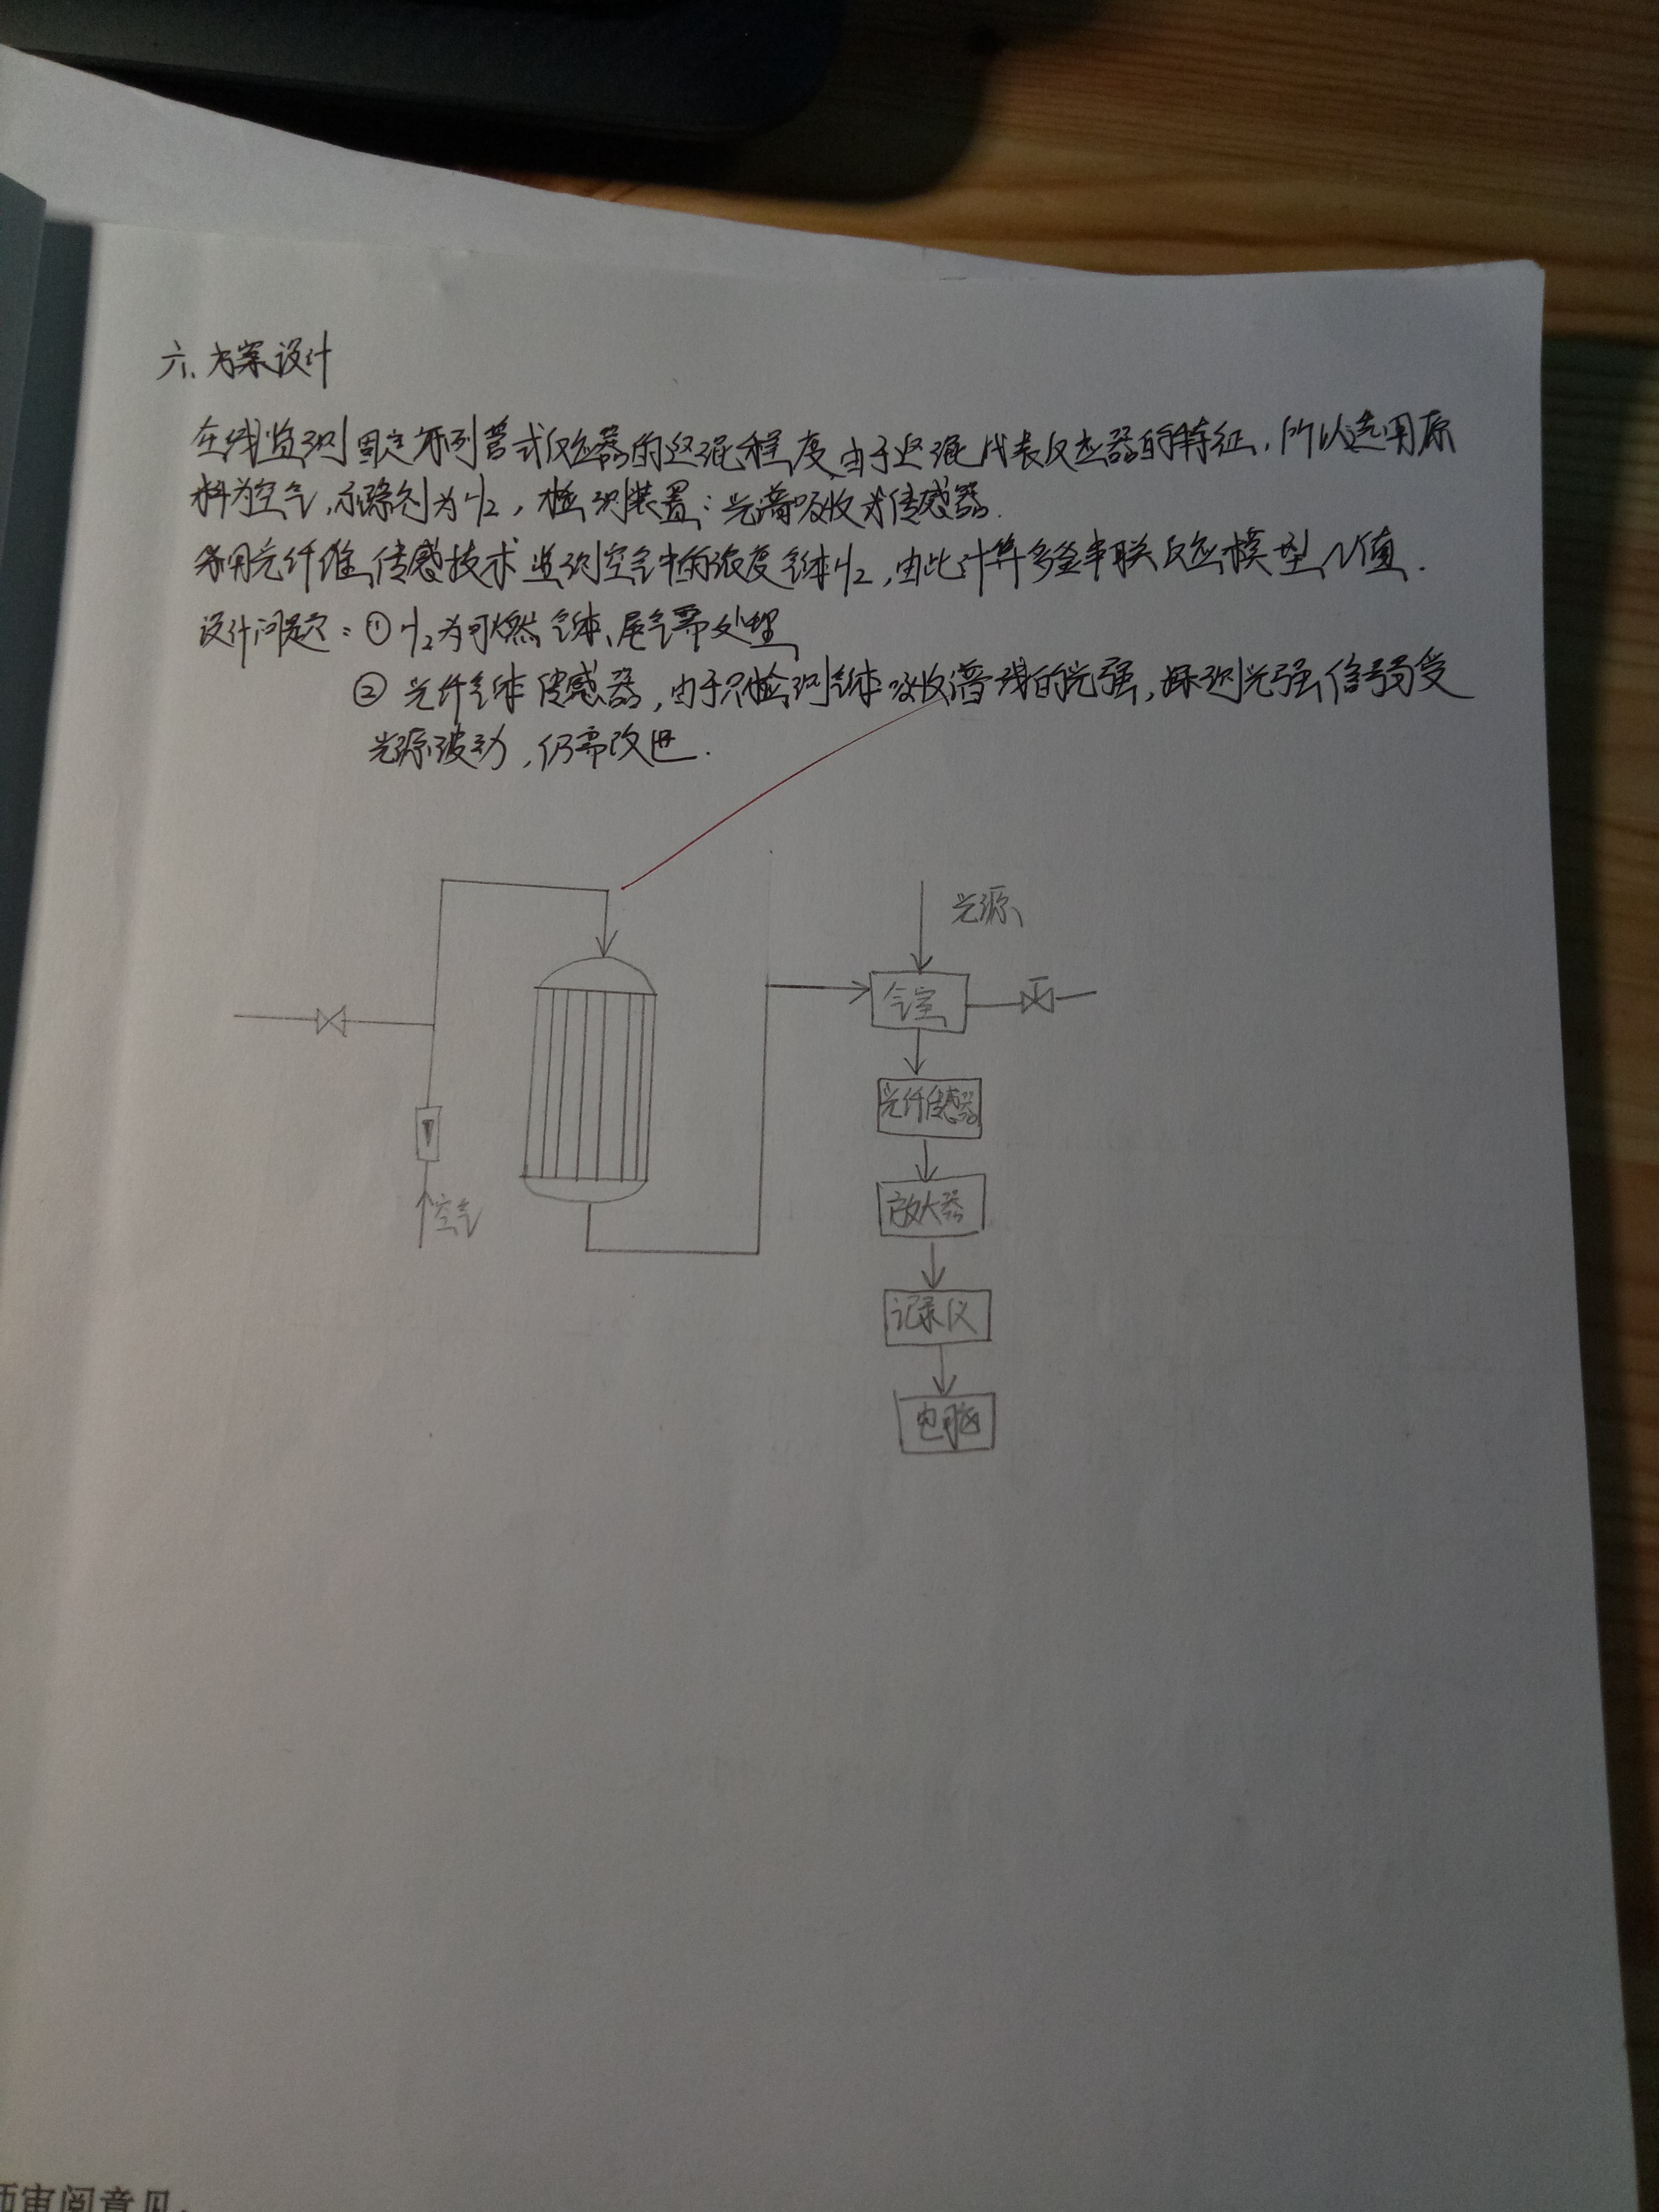 六、方案设计
在线监测固定床列管式反应器的返混程度,由于返混代表反应器的特征,所以选用原
料为空气,示踪剂为H2,检测装置:光谱吸收式传感器.
采用光纤维传感技术监测空气中的浓度气体H2,由此计算多釜串联反应模型N值.
设计问题:①H2为可燃气体、尾气需处理
②光纤气体传感器,由于只检测气体吸收谱线的光强,探测光强信号易受
光源波动,仍需改进.
光源
气室
光纤传感器
空气
放大器
记录仪
电脑
师审阅意见: